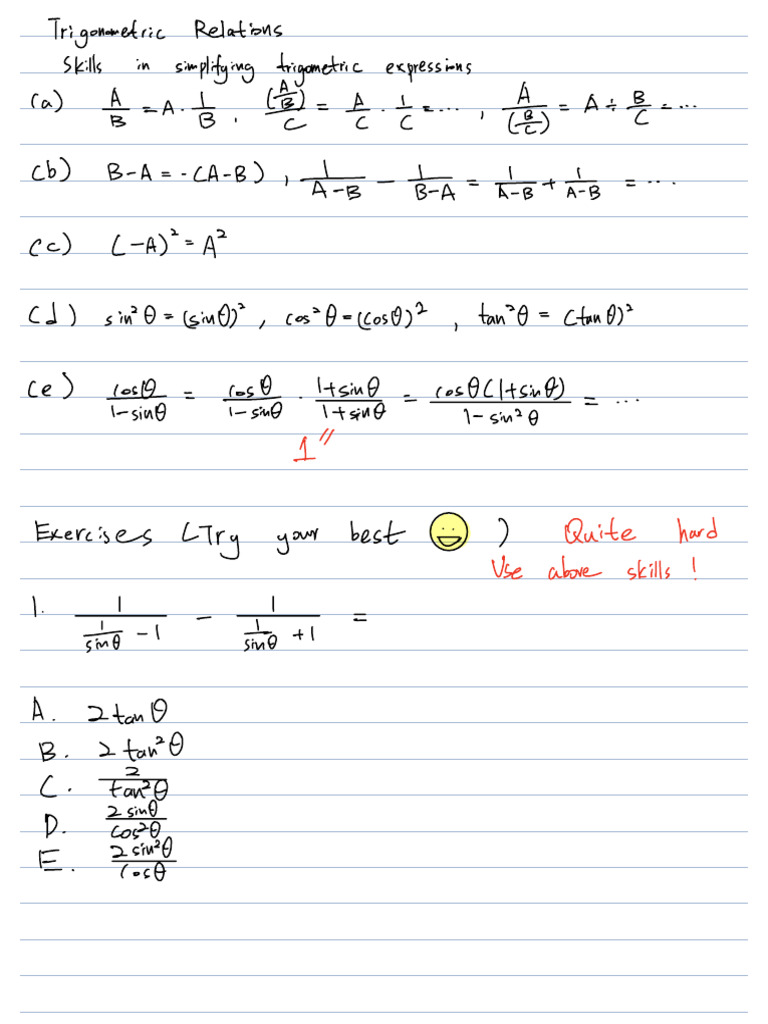 Trigonometric Relations
Skills in simplifying trigometric expressions
(a) A/B = A · 1/B , (A/B)/C = A/C · 1/C = ... , A/(B/C) = A ÷ B/C = ...
(b) B-A = -(A-B) , 1/(A-B) - 1/(B-A) = 1/(A-B) + 1/(A-B) = ...
(c) (-A)² = A²
(d) sin²θ = (sinθ)² , cos²θ = (cosθ)² , tan²θ = (tanθ)²
(e) cosθ/(1-sinθ) = cosθ/(1-sinθ) · (1+sinθ)/(1+sinθ) = cosθ(1+sinθ)/(1-sin²θ) = ...
1"
Exercises (Try your best ) Quite hard
Use above skills !
1. 1/(1/sinθ - 1) - 1/(1/sinθ + 1) =
A. 2tanθ
B. 2 tan²θ
C. 2/tan²θ
D. 2sinθ/cos²θ
E. 2sin²θ/cosθ